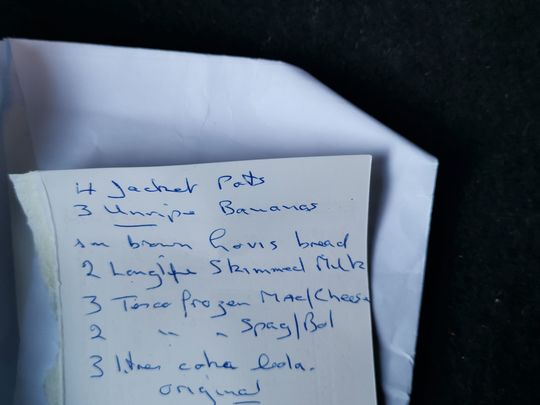 4 Jacket Pots
3 Unripe Bananas
sm brown hovis bread
2 Longlife Skimmed Milk
3 Tesco frozen Mac/Cheese
2 " " Spag/Bol
3 litres coka cola.
original